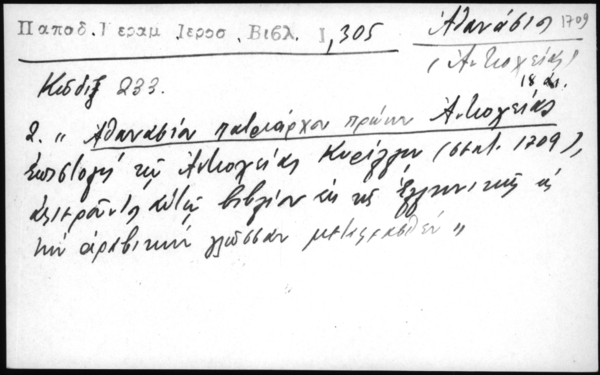 Παπαδ. Κεραμ Ιεροσ. Βιβλ. I, 305
Ἀθανάσιος 1709
(Ἀντιοχείας)
18 αι.
Κώδιξ 233.
2. „ Ἀθανασίου πατριάρχου πρώην Ἀντιοχείας
ἐπιστολὴ τῷ Ἀντιοχείας Κυρίλλῳ (στατ. 1709),
αὐτῷ βιβλίον ἐκ τῆς ἑλληνικῆς εἰς
τὴν ἀραβικὴν γλῶσσαν μεταφρασθέν „